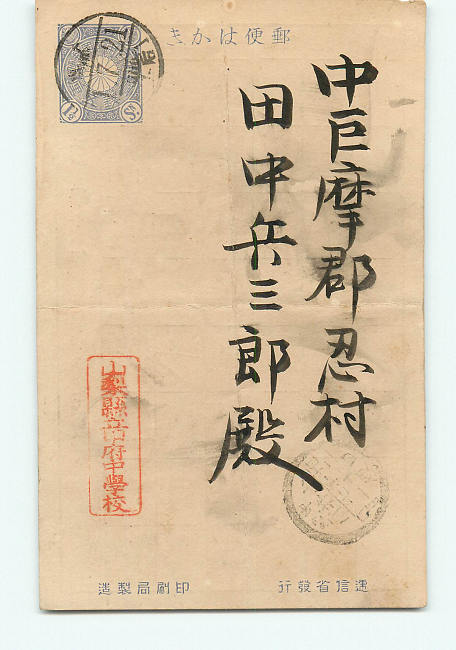 郵便はかき
中巨摩郡忍村
田中兵三郎殿
山梨縣立甲府中學校
遞信省發行
印刷局製造